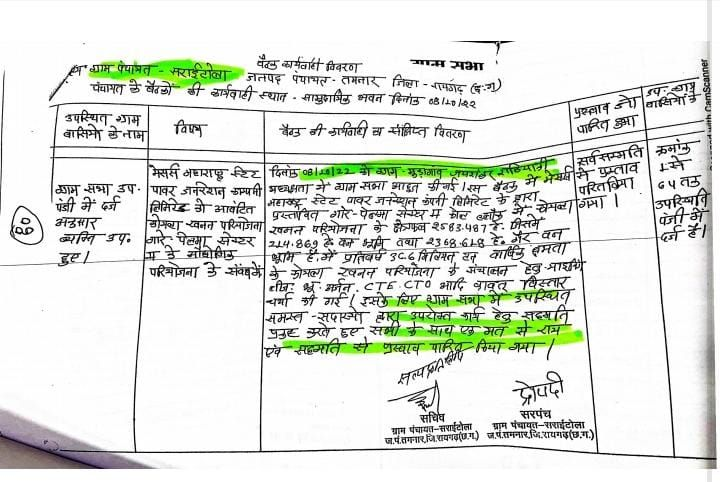 बैठक कार्यवाही विवरण
ग्राम सभा
ग्राम पंचायत - सराईटोला जनपद पंचायत - तमनार जिला - रायगढ़ (छ.ग)
पंचायत के बैठकों की कार्यवाही स्थान - सामुदायिक भवन दिनांक 08/10/22
उपस्थित ग्राम
बासियों के नाम
विषय
बैठक की कार्यवाही का संक्षिप्त विवरण
प्रस्ताव जो
पारित हुआ
उप. ग्राम
बासियों के
ग्राम सभा उप.
पंजी में दर्ज
अनुसार
व्यक्ति उप.
हुए।
मेसर्स महाराष्ट्र स्टेट
पावर जनरेशन कम्पनी
लिमिटेड को आबंटित
कोयला खनन परियोजना
गारे पेलमा सेक्टर
के
परियोजना के संबंध में
दिनांक 08/10/22 को ग्राम -
अध्यक्षता में ग्राम सभा की गई। इस बैठक में मेसर्स
महाराष्ट्र स्टेट पावर जनरेशन कंपनी लिमिटेड के द्वारा
प्रस्तावित गारे - पेलमा सेक्टर कोल ब्लॉक में कोयला
खनन परियोजना के क्षेत्रफल 2583.487 हे. जिसमें
214.869 हे. वन भूमि तथा 2368.618 हे. गैर वन
भूमि है। में प्रतिवर्ष वार्षिक क्षमता
के कोयला खनन परियोजना के संचालन हेतु
भू-अर्जन. CTE. CTO आदि बाबत् विस्तार
चर्चा की गई। इसके लिए ग्राम सभा में उपस्थित
समस्त - सदस्यों द्वारा उपरोक्त कार्य हेतु सहमति
प्रकट करते हुए सभी के साथ एक मत से राय
एवं सहमति से प्रस्ताव पारित किया गया।
सर्वसम्मति
से प्रस्ताव
पारित किया
गया।
क्रमांक
1 से
64 तक
उपस्थिति
पंजी में
दर्ज है।
सत्यप्रतिलिपि
द्रोपदी
सचिव
ग्राम पंचायत-सराईटोला
ज.पं.तमनार,जि.रायगढ़(छ.ग.)
सरपंच
ग्राम पंचायत-सराईटोला
ज.पं.तमनार,जि.रायगढ़(छ.ग.)
with CamScanner